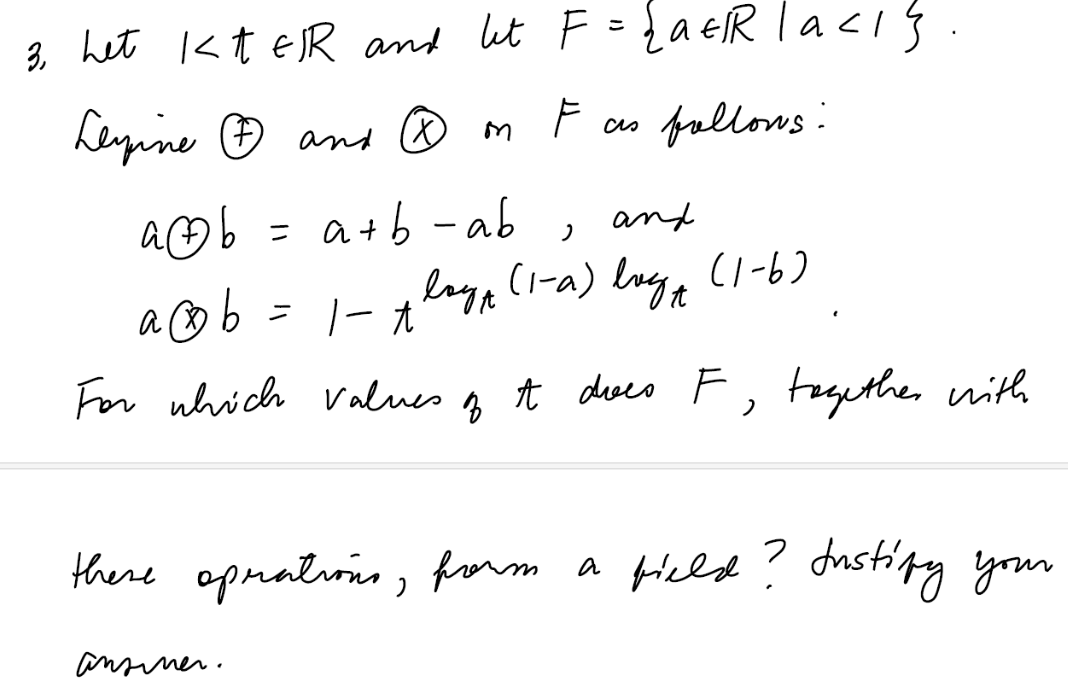 3, Let 1<t∈ℝ and let F = {a∈ℝ | a<1}.
Define ⊕ and ⊗ on F as follows:
a⊕b = a+b-ab, and
a⊗b = 1-t^{log_t(1-a) log_t(1-b)}.
For which values of t does F, together with
these operations, form a field? Justify your
answer.